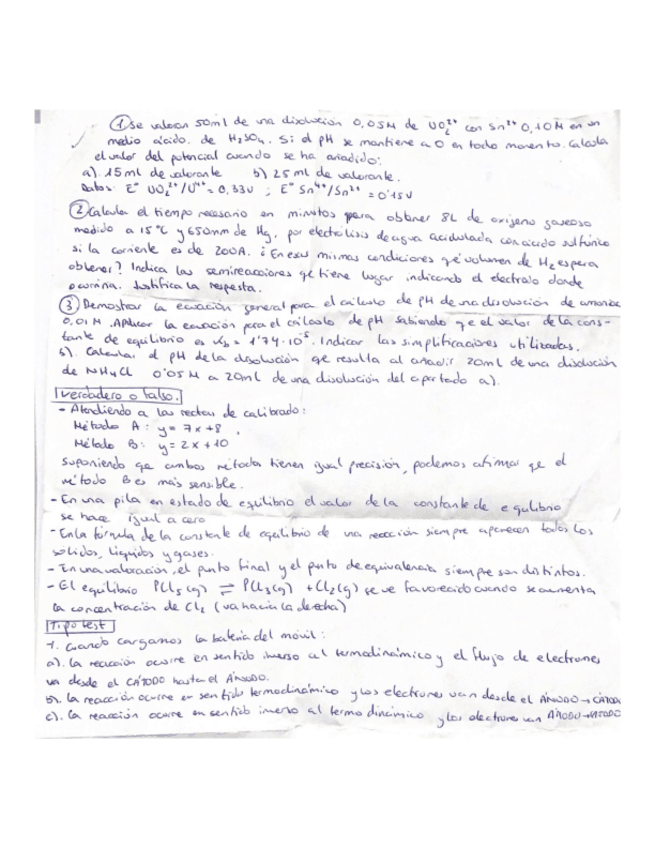 ① Se valoran 50ml de una disolución 0,05M de UO₂²⁺ con Sn²⁺ 0,10M en un
medio ácido de H₂SO₄. Si el pH se mantiene a 0 en todo momento. Calcula
el valor del potencial cuando se ha añadido:
a). 15ml de valorante b) 25 ml de valorante.
Datos: E° UO₂²⁺/U⁴⁺ = 0,33V ; E° Sn⁴⁺/Sn²⁺ = 0'15V
② Calcula el tiempo necesario en minutos para obtener 8L de oxígeno gaseoso
medido a 15°C y 650mm de Hg, por electrólisis de agua acidulada con ácido sulfúrico
si la corriente es de 200A. ¿En esas mismas condiciones qé volumen de H₂ espera
obtener? Indica las semireacciones qe tiene lugar indicando el electrodo donde
ocurriría. Justifica la respesta.
③ Demostrar la ecuación general para el cálculo de pH de una disolución de amoniaco
0,01M. Aplicar la ecuación para el cálculo de pH sabiendo qe el valor de la cons-
tante de equilibrio es = 1'74·10⁻⁵. Indicar las simplificaciones utilizadas.
b). Calcular el pH de la disolución qe resulta al añadir 20ml de una disolución
de NH₄Cl 0'05M a 20ml de una disolución del apartado a).
Verdadero o falso.
- Atendiendo a las rectas de calibrado:
Método A: y = 7x+8
Método B: y = 2x+10
suponiendo qe ambos métodos tienen igual precisión, podemos afirmar qe el
método B es más sensible.
- En una pila en estado de eqilibrio el valor de la constante de eqilibrio
se hace igual a cero
- En la fórmula de la constante de eqilibrio de una reacción siempre aparecen todos los
sólidos, líquidos y gases.
- En una valoración, el punto final y el punto de equivalencia siempre son distintos.
- El equilibrio PCl₅(g) ⇌ PCl₃(g) + Cl₂(g) se ve favorecido cuando se aumenta
la concentración de Cl₂ (va hacia la derecha)
Tipo test
1. Cuando cargamos la batería del móvil:
a). la reacción ocurre en sentido inverso al termodinámico y el flujo de electrones
va desde el CÁTODO hasta el ÁNODO.
b). la reacción ocurre en sentido termodinámico y los electrones van desde el ÁNODO→CÁTODO
c). la reacción ocurre en sentido inverso al termodinámico y los electrones van ÁNODO→CÁTODO